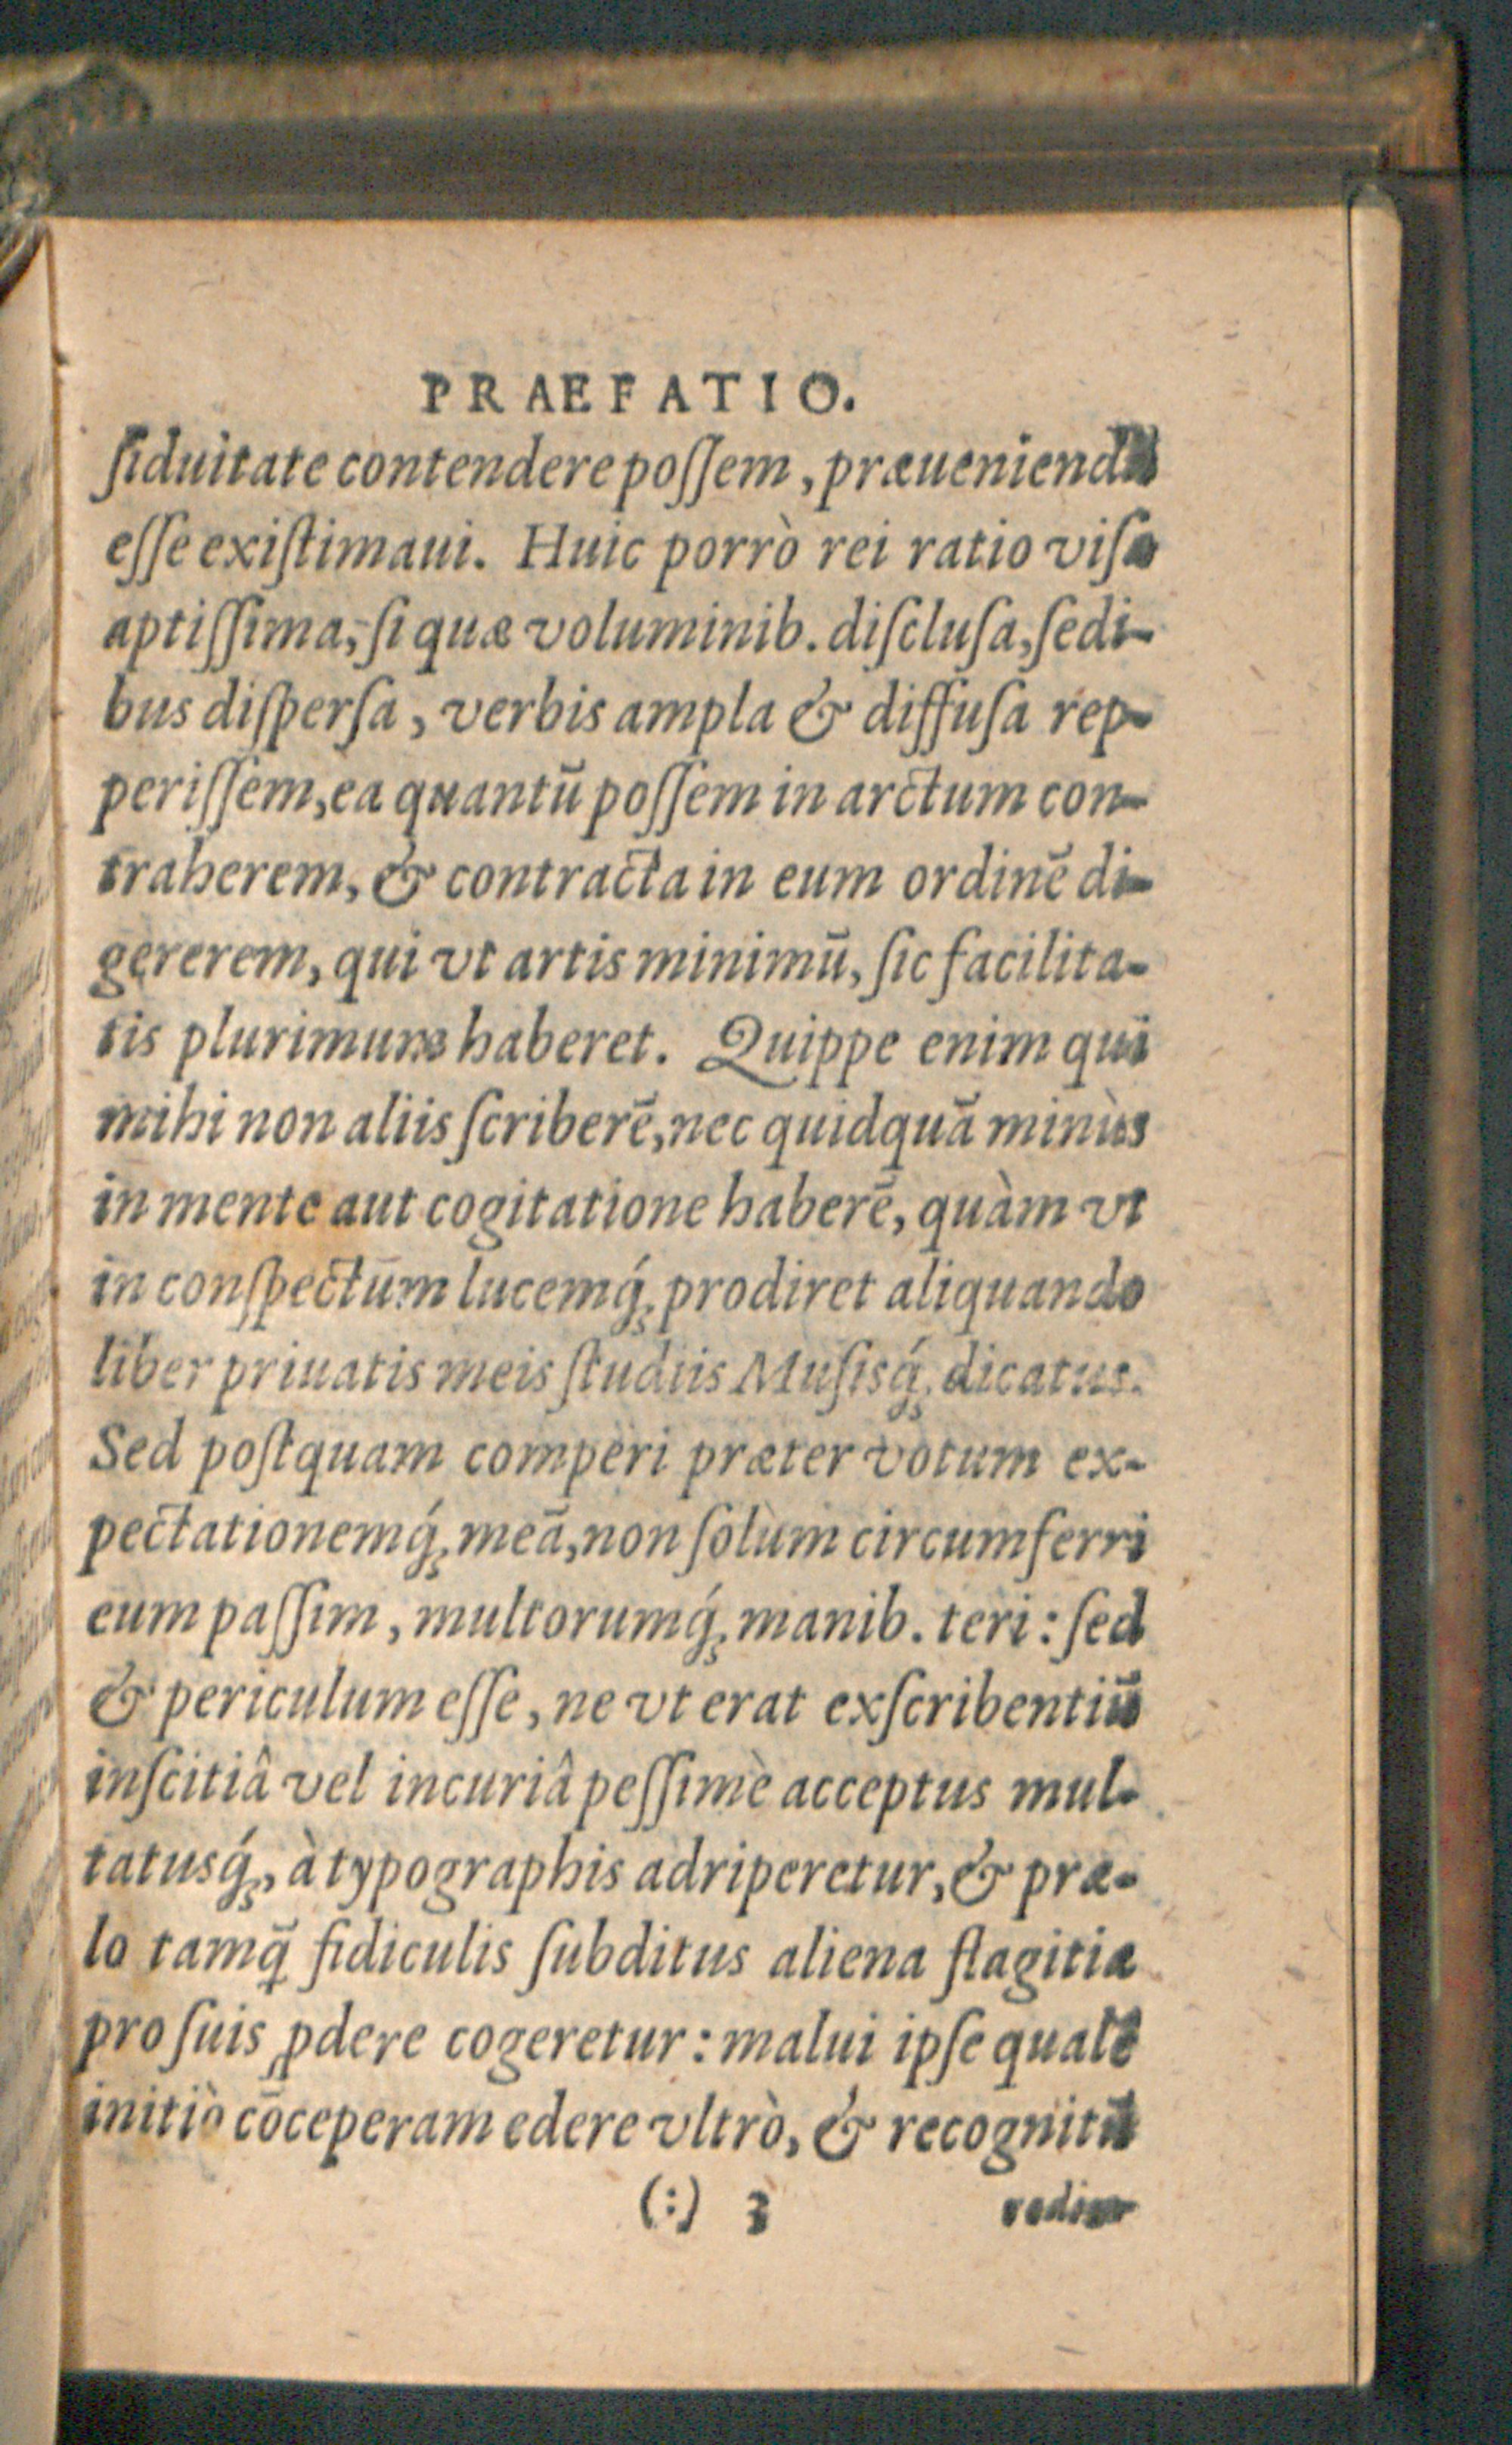 PRAEFATIO.
ſiduitate contendere poſſem, præueniendū
eſſe exiſtimaui. Huic porrò rei ratio viſa
aptiſſima, ſi quæ voluminib. diſcluſa, ſedi-
bus diſperſa, verbis ampla & diffuſa rep-
periſſem, ea quantū poſſem in arctum con-
traherem, & contracta in eum ordinē di-
gererem, qui vt artis minimū, ſic facilita-
tis plurimum haberet. Quippe enim qui
mihi non aliis ſcriberē, nec quidquā minùs
in mente aut cogitatione haberē, quàm vt
in conſpectum lucemq́; prodiret aliquando
liber priuatis meis ſtudiis Muſisq́; dicatus.
Sed poſtquam comperi præter votum ex-
pectationemq́; meā, non ſolùm circumferri
eum paſſim, multorumq́; manib. teri: ſed
& periculum eſſe, ne vt erat exſcribentiū
inſcitiâ vel incuriâ peſſimè acceptus mul-
tatusq́;, à typographis adriperetur, & præ-
lo tamq̃ fidiculis ſubditus aliena flagitia
pro ſuis ꝓdere cogeretur: malui ipſe qualē
initiò cōceperam edere vltrò, & recognitū
(:) 3